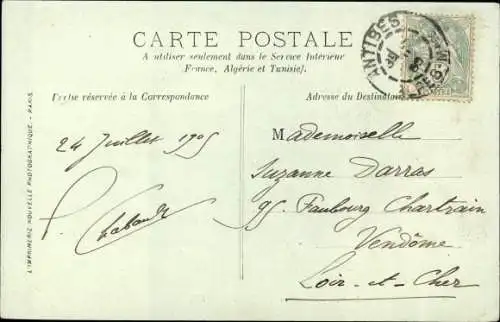 CARTE POSTALE
A utiliser seulement dans le Service Intérieur
(France, Algérie et Tunisie).
Partie réservée à la Correspondance
Adresse du Destinataire
ANTIBES
24 Juillet 1905
Mademoiselle
Suzanne Darras
95 Faubourg Chartrain
Vendôme
Loir-et-Cher
L'IMPRIMERIE NOUVELLE PHOTOGRAPHIQUE. - PARIS